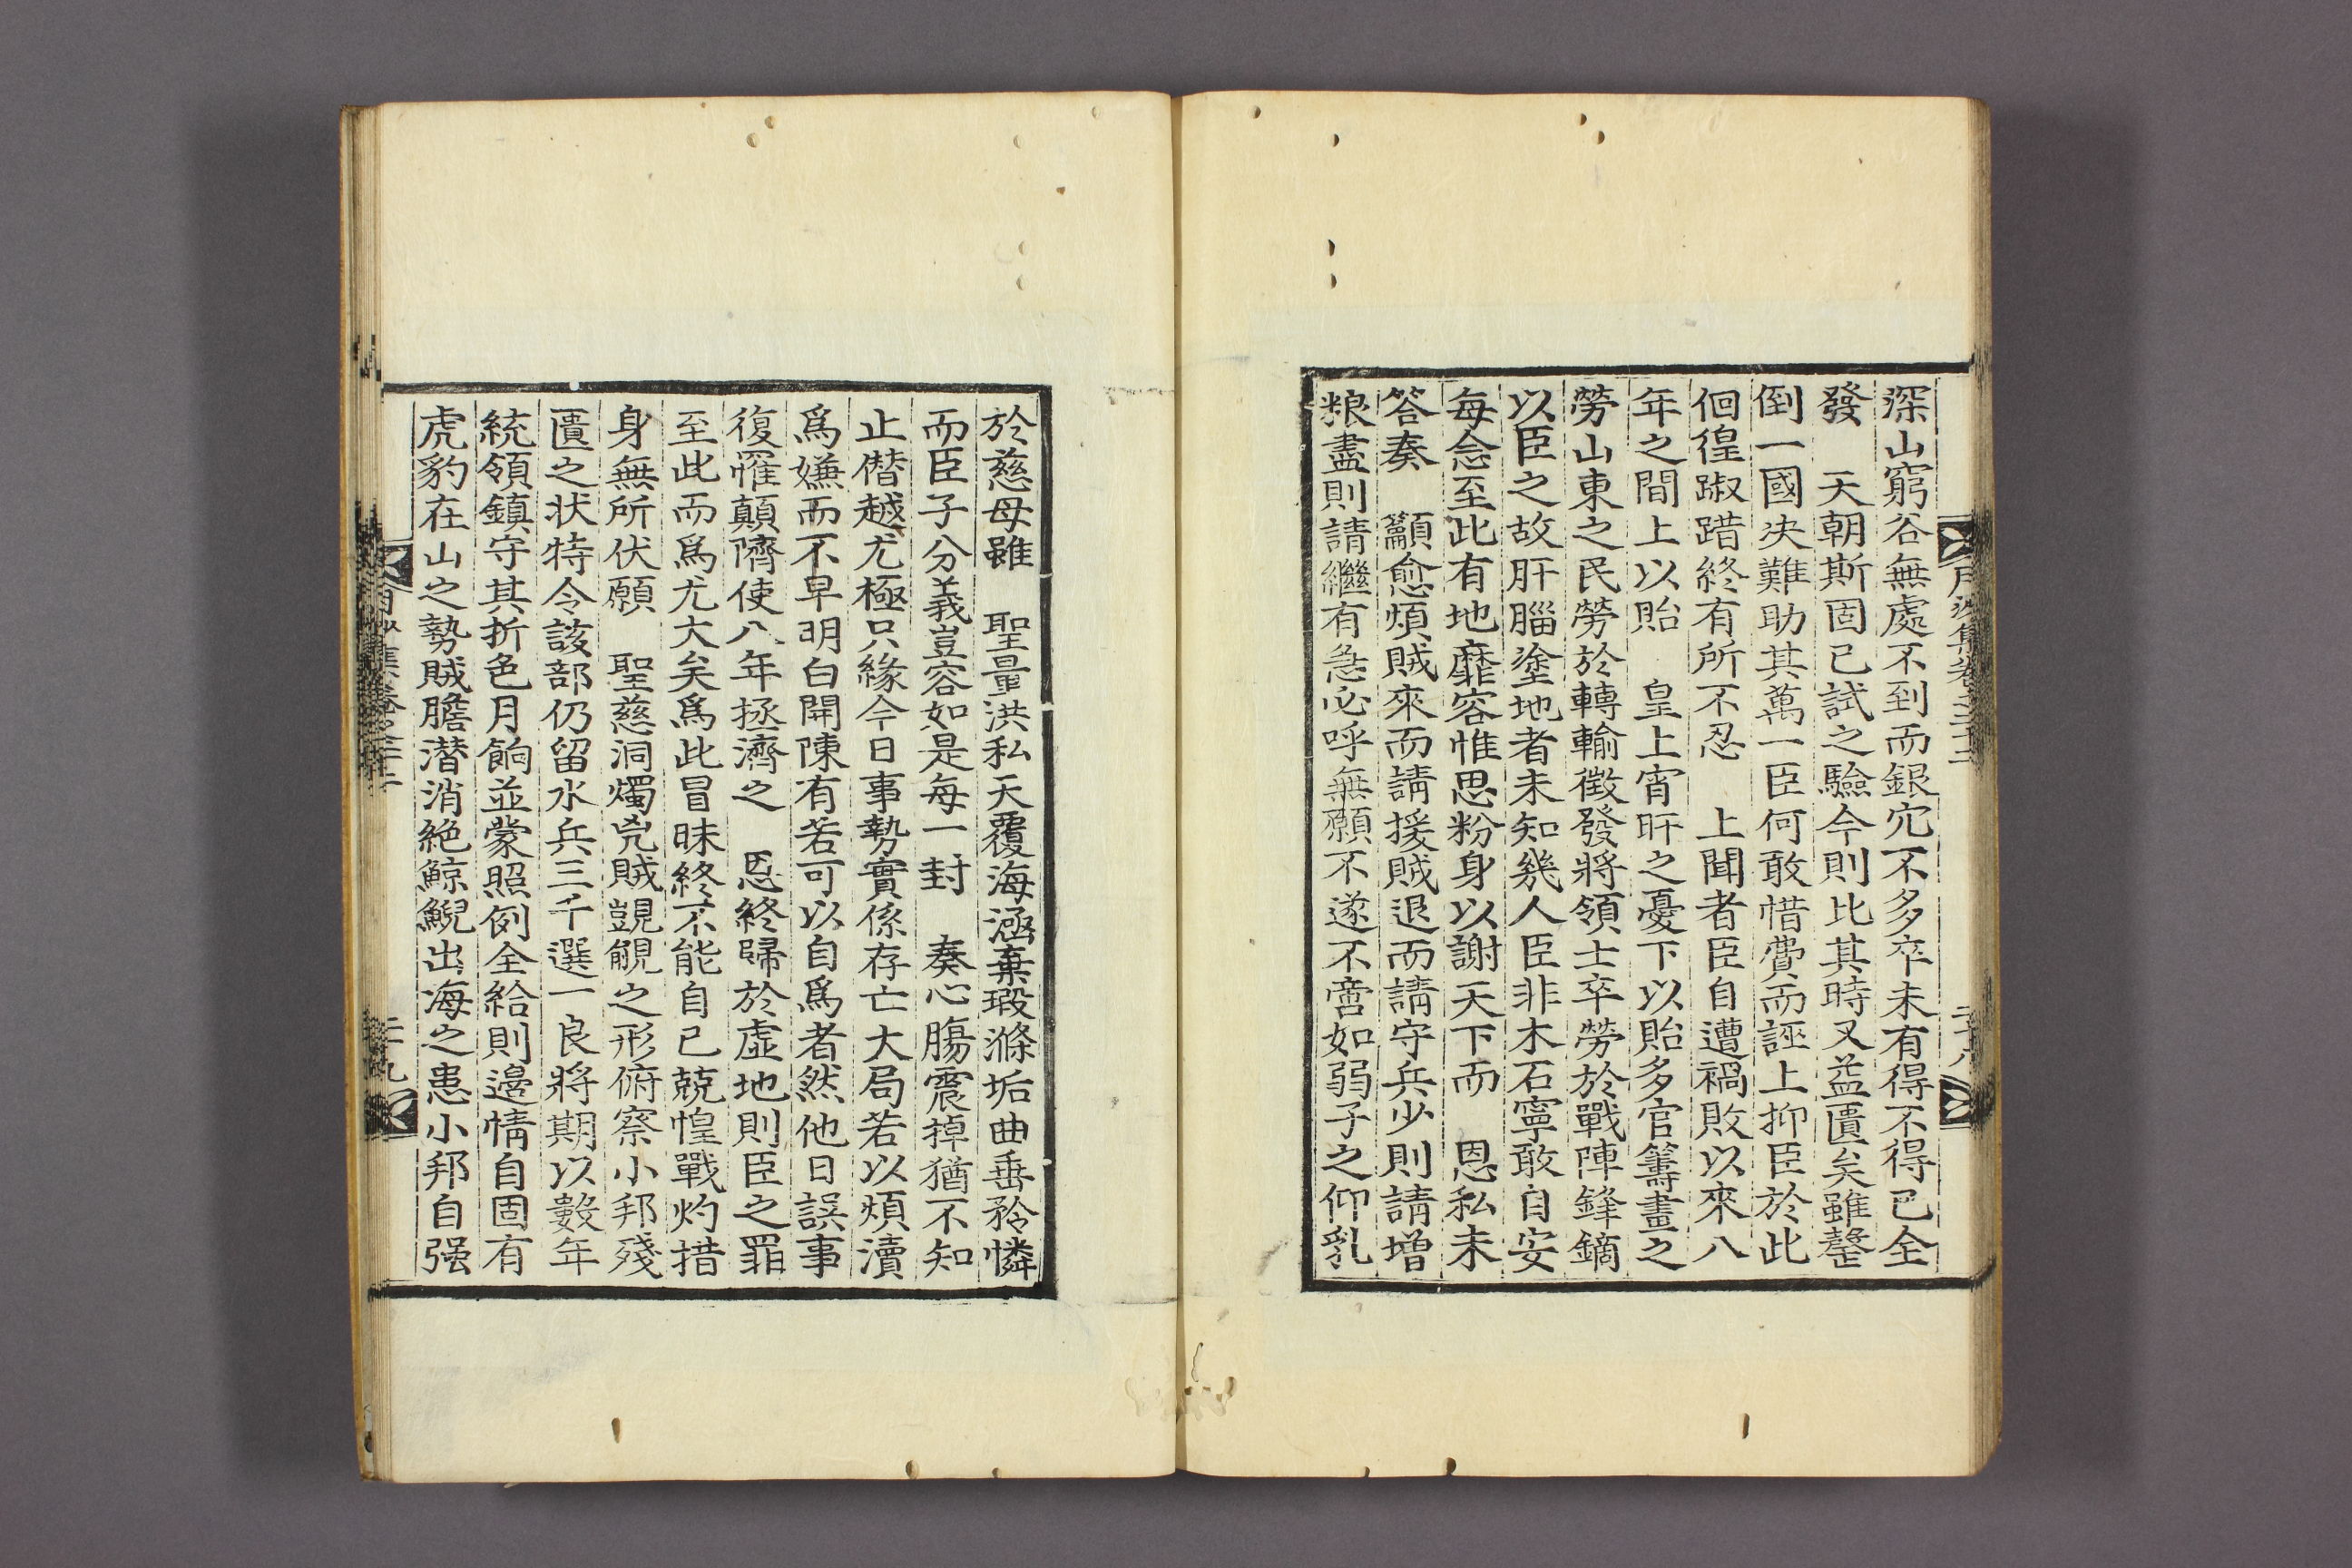 深山窮谷無處不到而銀穴不多卒未有得不得已全
發　天朝斯固已試之驗今則比其時又益匱矣雖罄
倒一國决難助其萬一臣何敢惜費而誣上抑臣於此
徊徨踧踖終有所不忍　上聞者臣自遭禍敗以來八
年之間上以貽　皇上宵旰之憂下以貽多官籌畫之
勞山東之民勞於轉輸徵發將領士卒勞於戰陣鋒鏑
以臣之故肝腦塗地者未知幾人臣非木石寧敢自安
每念至此有地靡容惟思粉身以謝天下而　恩私未
答奏　籲愈煩賊來而請援賊退而請守兵少則請增
粮盡則請繼有急必呼無願不遂不啻如弱子之仰乳
於慈母雖　聖量洪私天覆海涵棄瑕滌垢曲垂矜憐
而臣子分義豈容如是每一封　奏心膓震掉猶不知
止僭越尤極只緣今日事勢實係存亡大局若以煩瀆
爲嫌而不早明白開陳有若可以自爲者然他日誤事
復罹顛隮使八年拯濟之　恩終歸於虛地則臣之罪
至此而爲尤大矣爲此冒昧終不能自已兢惶戰灼措
身無所伏願　聖慈洞燭兇賊覬覦之形俯察小邦殘
匱之状特令該部仍留水兵三千選一良將期以數年
統領鎮守其折色月餉並蒙照例全給則邊情自固有
虎豹在山之勢賊膽潜消絶鯨鯢出海之患小邦自强